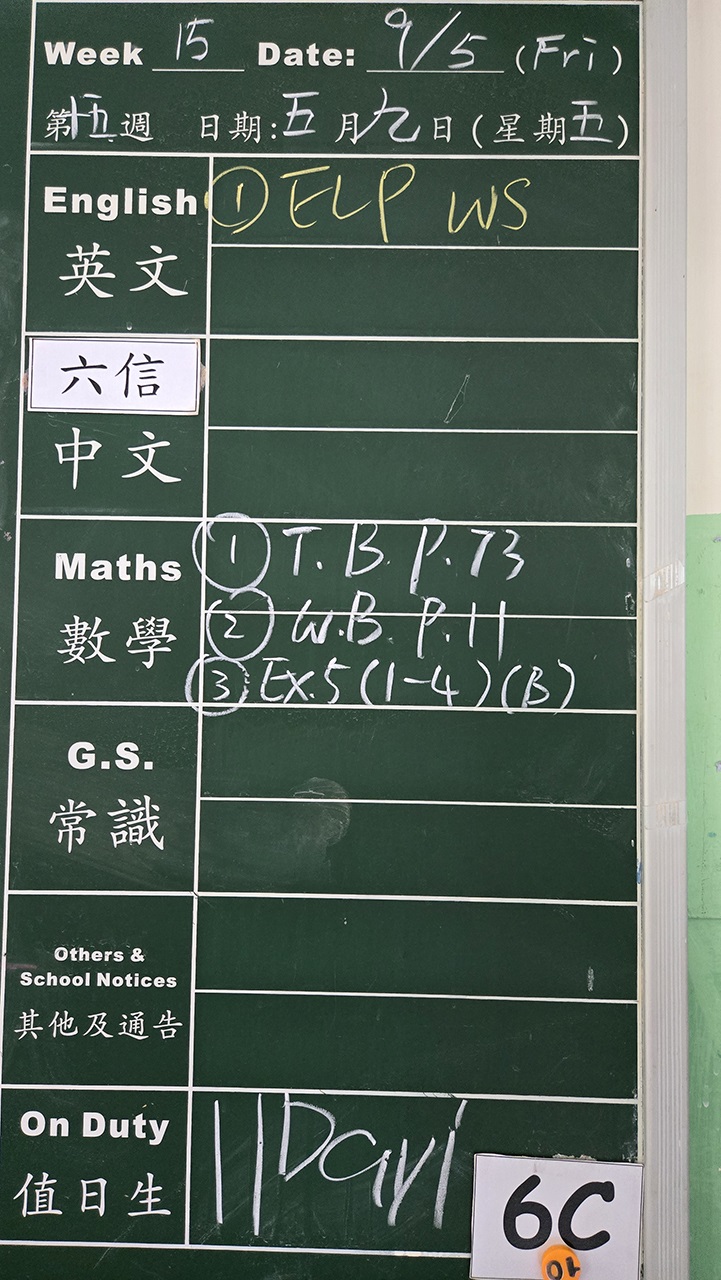 Week 15 Date: 9/5 (Fri)
第十五週 日期:五月九日(星期五)
English ① ELP WS
英文
六信
中文
Maths ① T.B. P.73
數學 ② W.B P.11
③ Ex.5 (1-4) (B)
G.S.
常識
Others &
School Notices
其他及通告
On Duty 11
值日生
6C